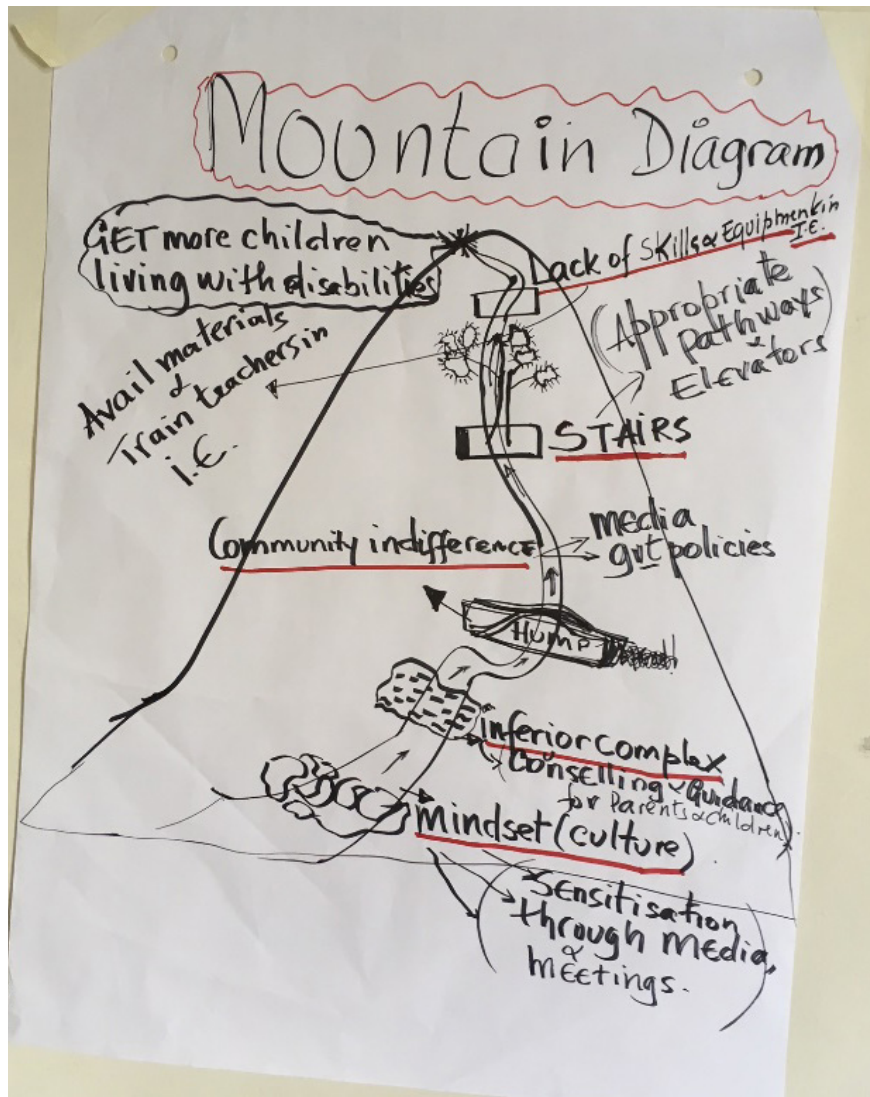 Mountain Diagram
GET more children
living with disabilities
Lack of Skills & Equipment in
I.E.
Avail materials
&
Train teachers in
I.E.
(Appropriate
Pathways)
&
Elevators
STAIRS
Community indifference
media
gvt policies
HUMP
inferior complex
Conselling & Guidance
for Parents & Children)
Mindset (culture)
(Sensitisation
through media,
&
meetings.)